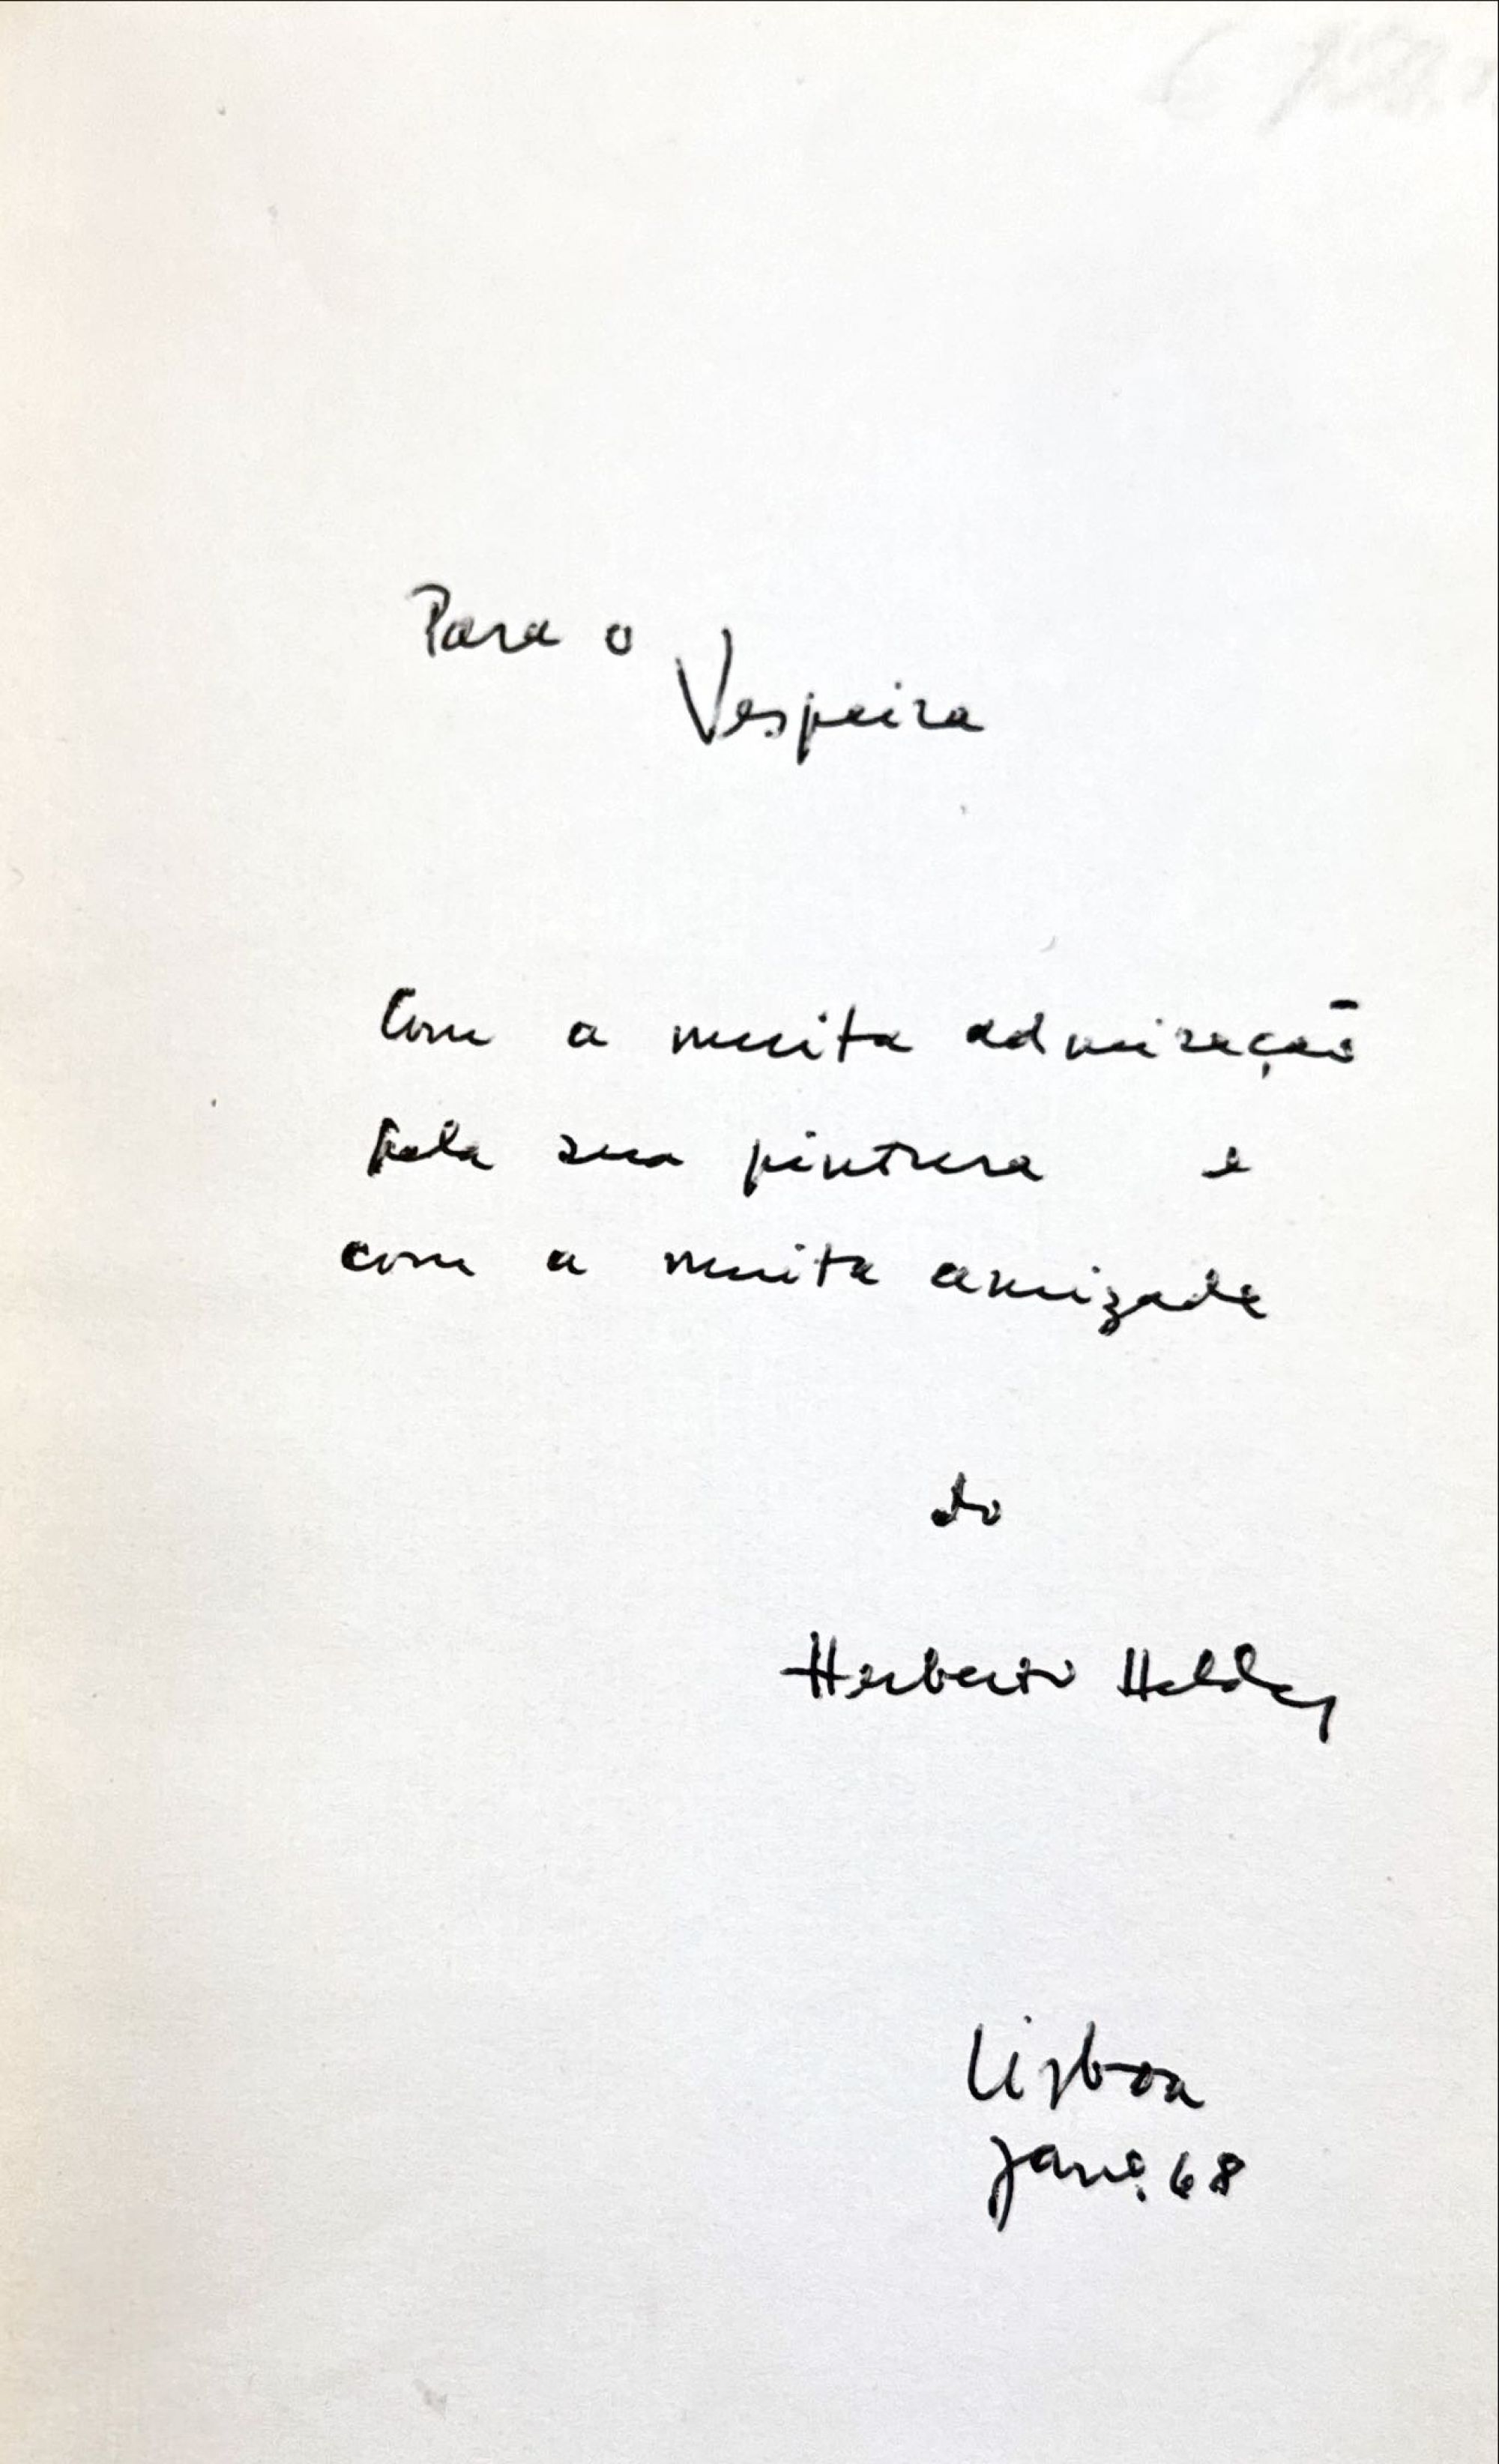 Para o
Vespeira
Com a muita admiração
pela sua pintura e
com a muita amizade
do
Herberto Helder
Lisboa
Janº. 68